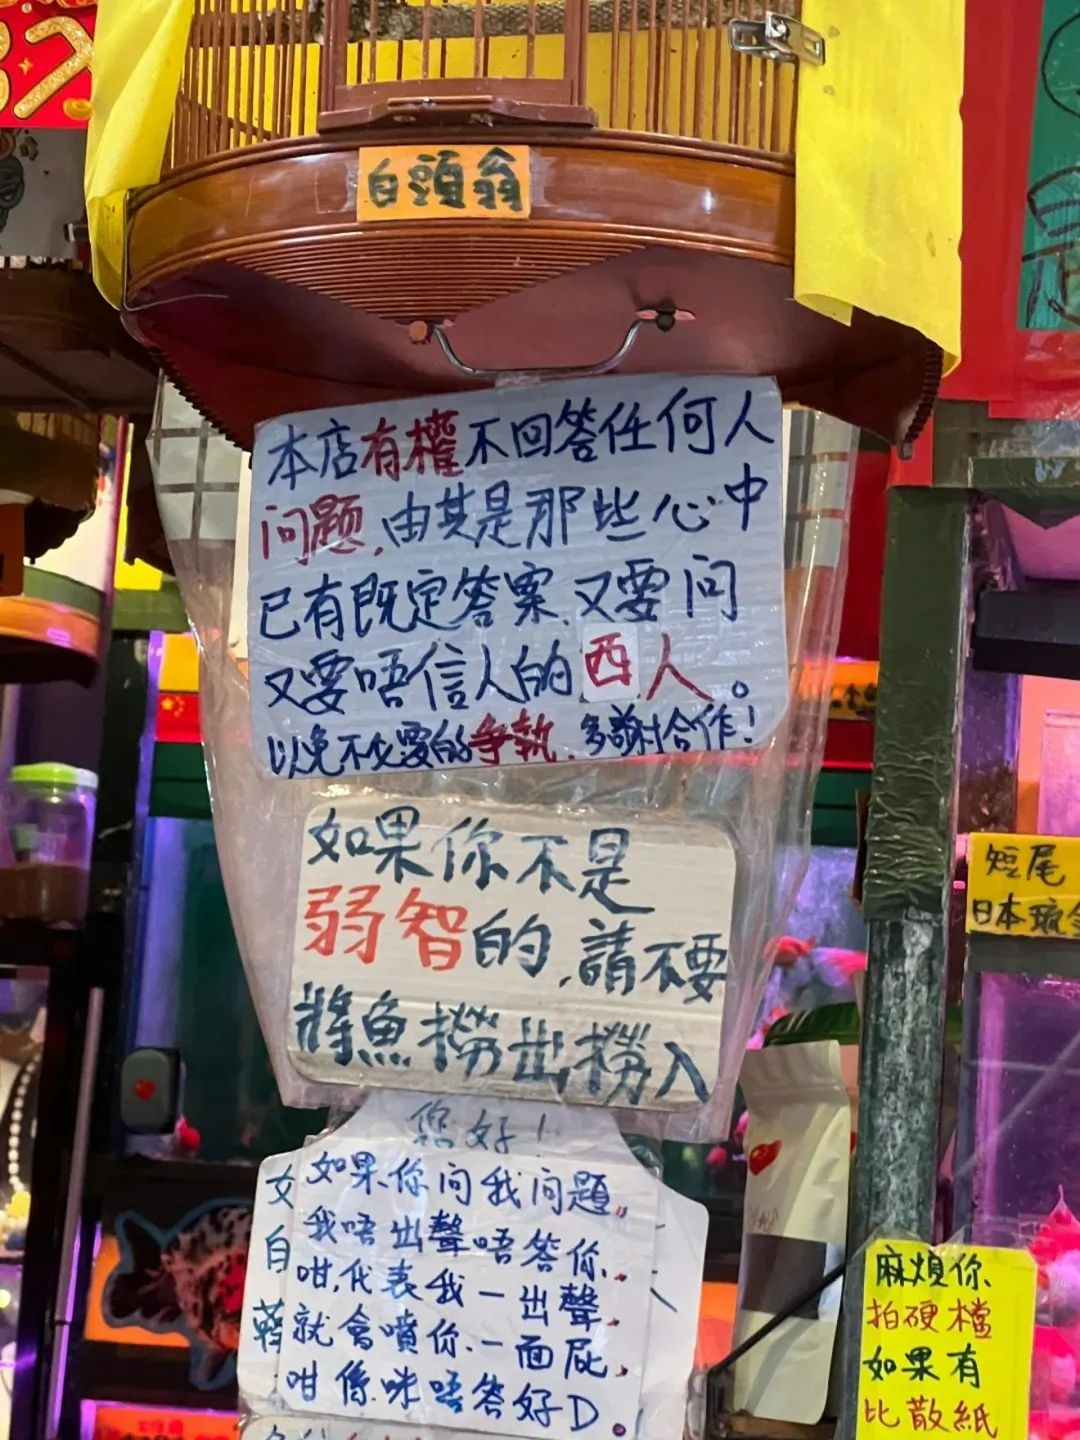 白頭翁
本店有權不回答任何人
问题,由其是那些心中
已有既定答案,又要问
又要唔信人的西人。
以免不必要的争執,多謝合作!
如果你不是
弱智的,請不要
將魚撈出撈入
您好!
如果你问我问題,
我唔出聲唔答你,
咁,代表我一出聲,
就會噴你一面屁,
咁係咪唔答好D。
女
自
短尾
日本琉金
麻煩你
拍硬檔
如果有
比散紙